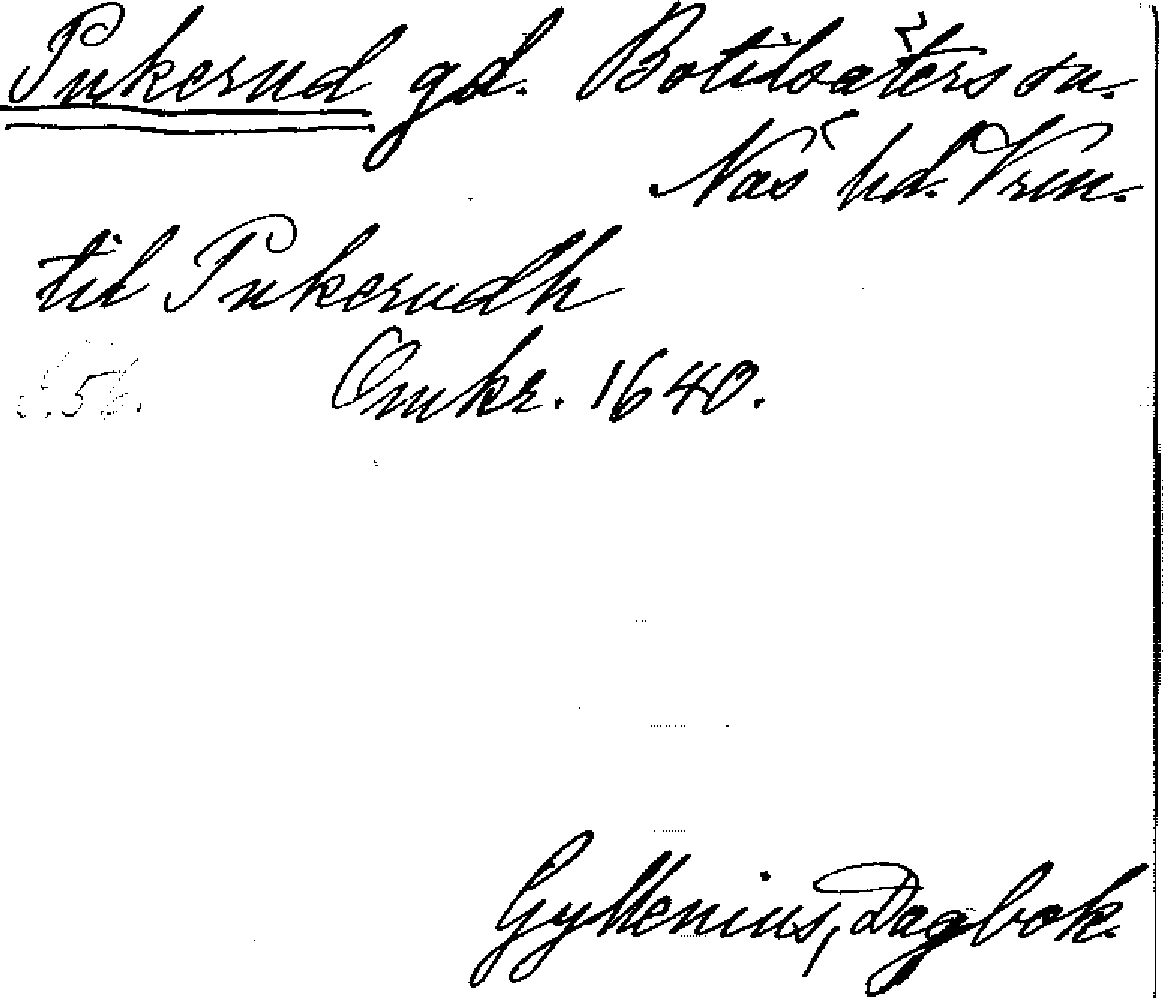 Pukerud gd. Botilsäters sn.
Näs hd. Vrm.
til Pukerudh
S. 56. Omkr. 1640.
Gyllenius, Dagbok.